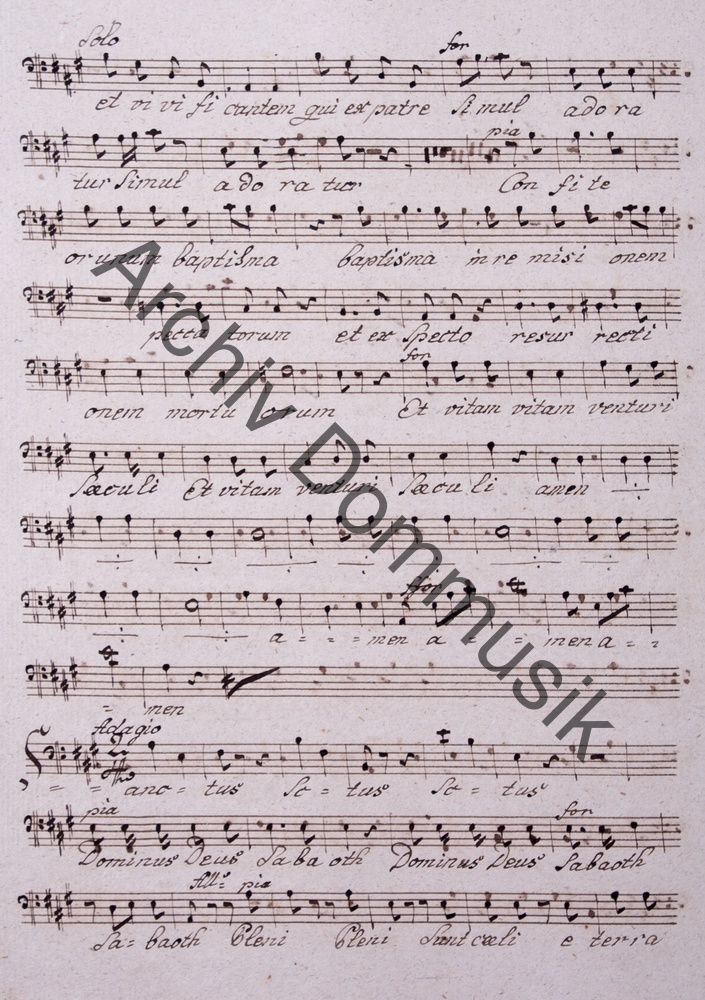 Solo
for
et vi vi fi cantem qui ex patre Si mul ado ra
pia
tur Simul a do ra tur Con fi te
or unum baptisma baptisma in re misi onem
pecca torum et ex Specto resur recti
for
onem mortu orum Et vitam vitam venturi
Sæculi Et vitam venturi Sæcu li amen
ffor
a = = = men a = = = men a = =
= men
Adagio
= = anc = tus Sc = tus Sc = tus
pia for
Dominus Deus Sabaoth Dominus Deus Sabaoth
All:º pia
Sa = baoth Pleni Pleni Sunt cœli e terra
Archiv Dommusik